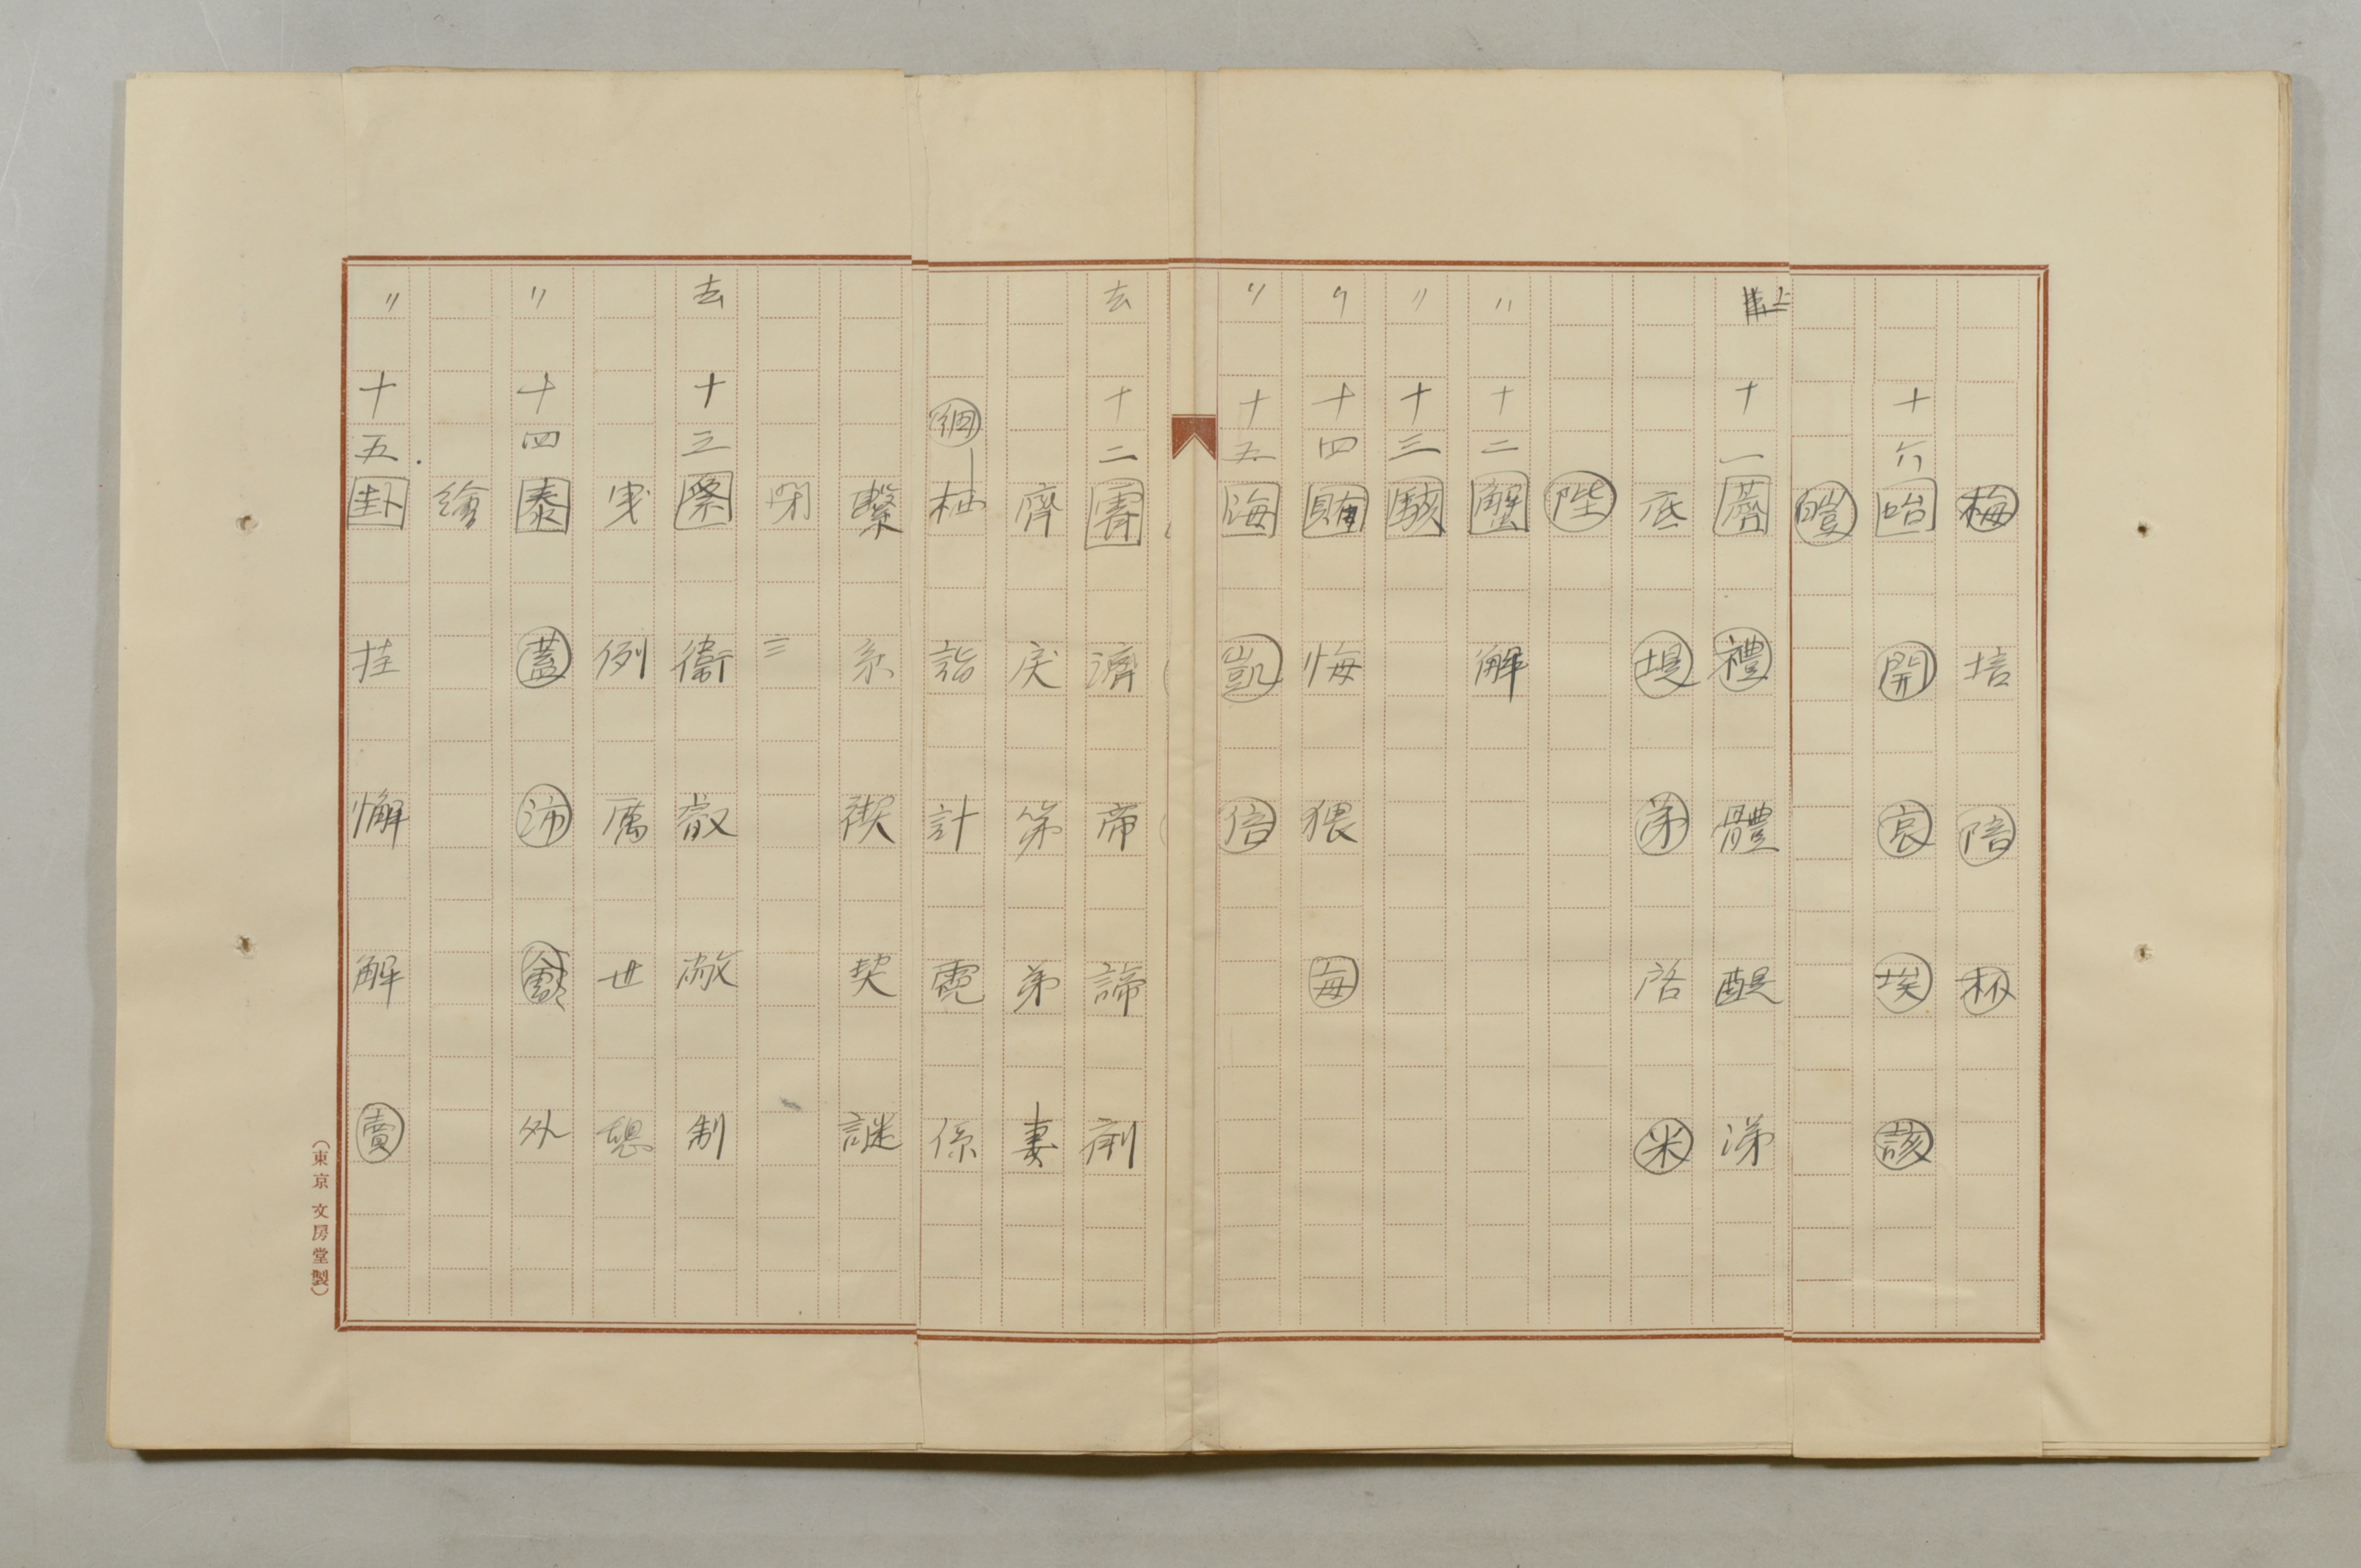 梅 培 陪 杯
十六 咍 開 哀 埃 該
皚
上 十一 薺 禮 體 醍 涕
底 堤 弟 启 米
陛
〃 十二 蟹 解
〃 十三 駭
〃 十四 賄 悔 猥 每
〃 十五 海 凱 倍
去 十二 霽 濟 帝 諦 劑
齊 戾 第 弟 妻
栖 詣 計 霓 係
繫 系 禊 契 謎
閉
去 十三 祭 衞 叡 敝 制
曳 例 厲 世 憩
〃 十四 泰 蓋 沛 會 外
繪
〃 十五 卦 挂 懈 解 賣
(東京 文房堂製)